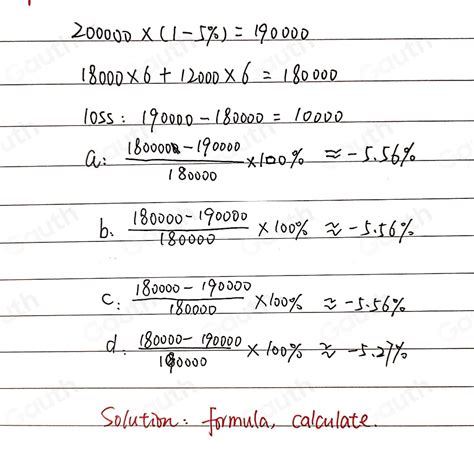 200000 × (1 - 5%) = 190000
18000 × 6 + 12000 × 6 = 180000
loss : 190000 - 180000 = 10000
a: (180000 - 190000) / 180000 × 100% ≈ -5.56%
b. (180000 - 190000) / 180000 × 100% ≈ -5.56%
c: (180000 - 190000) / 180000 × 100% ≈ -5.56%
d. (180000 - 190000) / 190000 × 100% ≈ -5.27%
Solution: formula, calculate.
Gauth